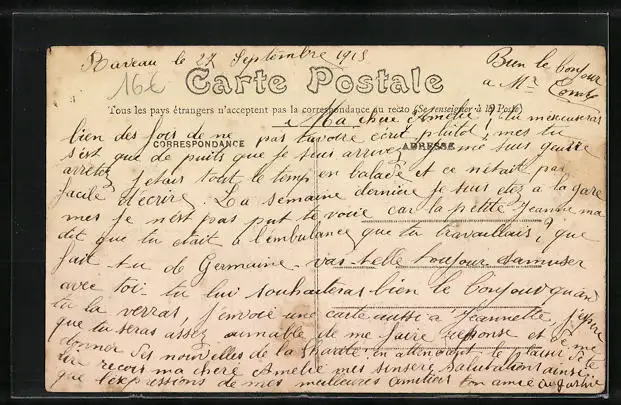 Raveau le 27 Septembre 1915
Bien le bonjour
a Mr
16€
Carte Postale
Tous les pays étrangers n'acceptent pas la correspondance au recto (Se renseigner à la Poste)
Ma chere Amelie, tu mescuseras
bien des fois de ne pas tavoire écrit plutot, mes tu
sest que depuits que je suis arrivez je me suis guere
CORRESPONDANCE
ADRESSE
arretez jetais tout le temp en balade et ce nétait pas
facile decrire. La semaine derniere je suis etez a la gare
mes je nest pas put te voire car la petite Jeannne ma
dit que tu etait à lembulance que tu travaillais, que
fait-tu de Germaine vas-telle toujour samuser
avec toi. tu lui souhaiteras bien le bonjour quan
tu la verras, j'envoie une carte aussi a Jeannette, jespere
que tu seras assez aimable de me faire reponse et de me
donner des nouvelles de la Charité en attendant le plaisir de te
lire recois ma chere Amelie mes sinsere Salutations ainsi
que l'expressions de mes meilleures amities ton amie